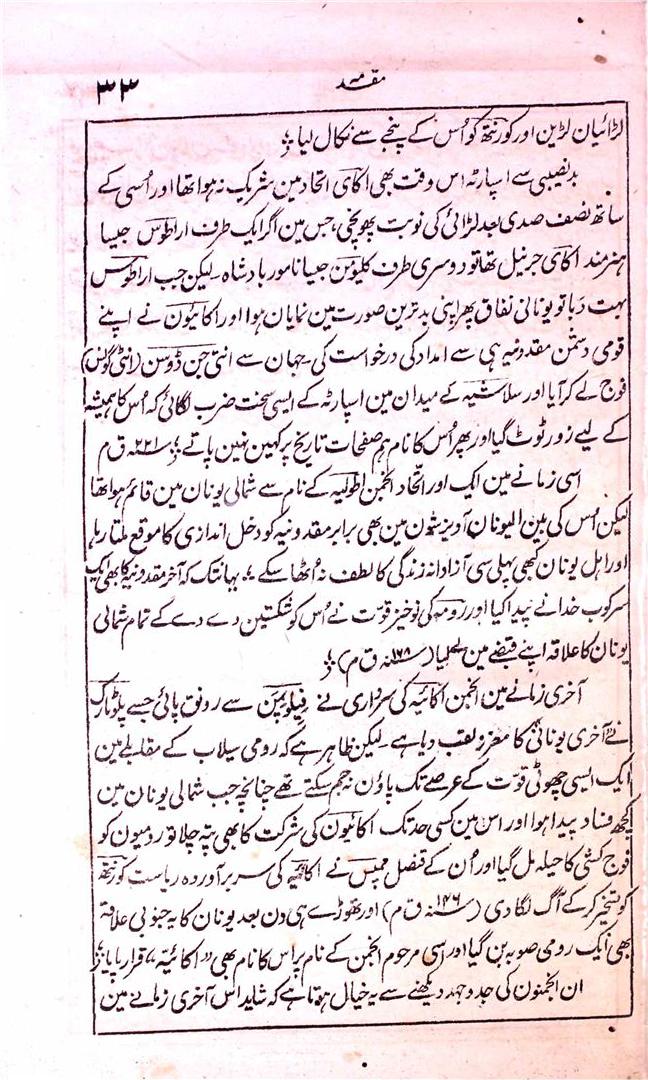 ۳۳ مقدمہ
لڑائیان لڑین اور کورنتھ کو اُس کے پنجے سے نکال لیا ؛
بدنصیبی سے اسپارٹہ اس وقت بھی اکائ اتحاد مین شریک نہ ہوا تھا اور اُسی کے
ساتھ نصف صدی بعد لڑائی کی نوبت پہونچی، جس مین اگر ایک طرف اراطوس جیسا
ہنرمند اکائ جرنیل تھا تو دوسری طرف کلیومن جیسا نامور بادشاہ۔ لیکن جب اراطوس
بہت دَبا تو یونانی نفاق پھر اپنی بدترین صورت مین نمایان ہوا اور اکائیون نے اپنے
قومی دشمن مقدونیہ ہی سے امداد کی درخواست کی۔ جہان سے انتی جن ڈوسن (انٹی گونس)
فوج لے کر آیا اور سلاشیہ کے میدان مین اسپارٹہ کے ایسی سخت ضرب لگائی کہ اُس کا ہمیشہ
کے لیے زور ٹوٹ گیا اور پھر اُس کا نام ہم صفحات تاریخ پر کہین نہین پاتے ؛ سنہ ۲۲۱ ق م
اسی زمانے مین ایک اور اتحاد انجمن اطولیہ کے نام سے شمالی یونان مین قائم ہوا تھا
لیکن اُس کی بین الیونان آویزشون مین بھی برابر مقدونیہ کو دخل اندازی کا موقع ملتا رہا
اور اہل یونان کبھی پہلی سی آزادانہ زندگی کا لطف نہ اُٹھا سکے ؛ یہانتک کہ آخر مقدونیہ کا بھی ایک
سرکوب خدا نے پیدا کیا اور رومہ کی نوخیز قوت نے اُس کو شکستین دے دے کے تمام شمالی
یونان کا علاقہ اپنے قبضے مین لے لیا (سنہ ۱۶۸ ق م) ؛
آخری زمانے مین انجمن اکائیہ کی سرداری نے فیلوپمن سے رونق پائی جسے پلوٹارک
نے "آخری یونانی" کا معزز لقب دیا ہے۔ لیکن ظاہر ہے کہ رومی سیلاب کے مقابلے مین
ایک ایسی چھوٹی قوت کے عرصے تک پاؤن نہ جم سکتے تھے چنانچہ جب شمالی یونان مین
کچھ فساد پیدا ہوا اور اس مین کسی حد تک اکائیون کی شرکت کا بھی پتہ چلا تو رومیون کو
فوج کشی کا حیلہ مل گیا اور اُن کے قنصل ممیس نے اکائیہ کی سربرآوردہ ریاست کورنتھ
کو تسخیر کر کے آگ لگا دی (سنہ ۱۴۶ ق م) اور تھوڑے ہی دن بعد یونان کا یہ جنوبی علاقہ
بھی ایک رومی صوبہ بن گیا اور اسی مرحوم انجمن کے نام پر اس کا نام بھی "اکائیہ" قرار پایا ؛
ان انجمنون کی جد و جہد دیکھنے سے یہ خیال ہوتا ہے کہ شاید اس آخری زمانے مین